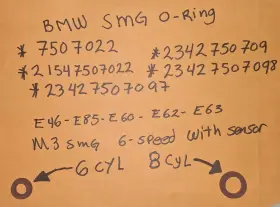 BMW SMG O-Ring
* 7507022
* 23427507O9
* 21547507022
* 23427507098
* 23427507097
E46-E85-E60-E62-E63
M3 smG 6-speed with sensor
6 CYL
8 CYL